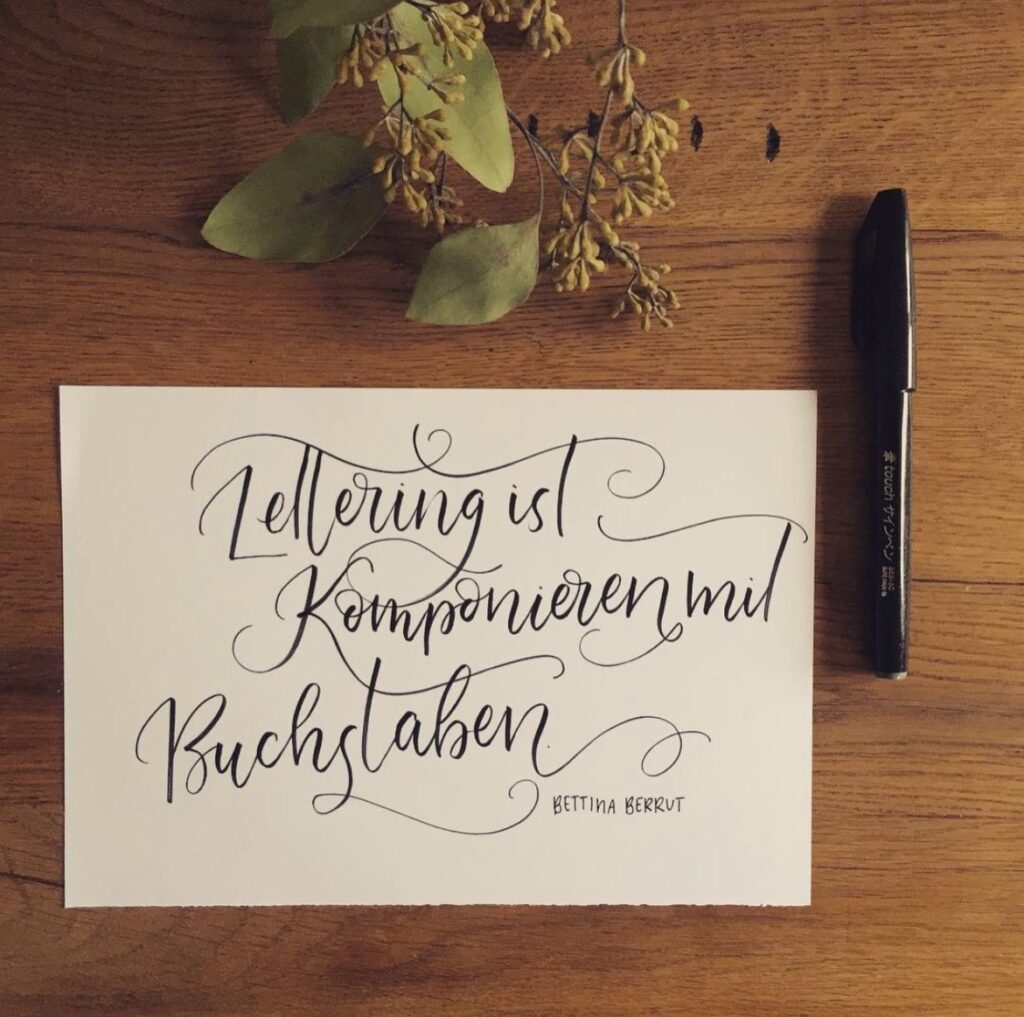 Lettering ist
Komponieren mit
Buchstaben
BETTINA BERRUT
touch サインペン